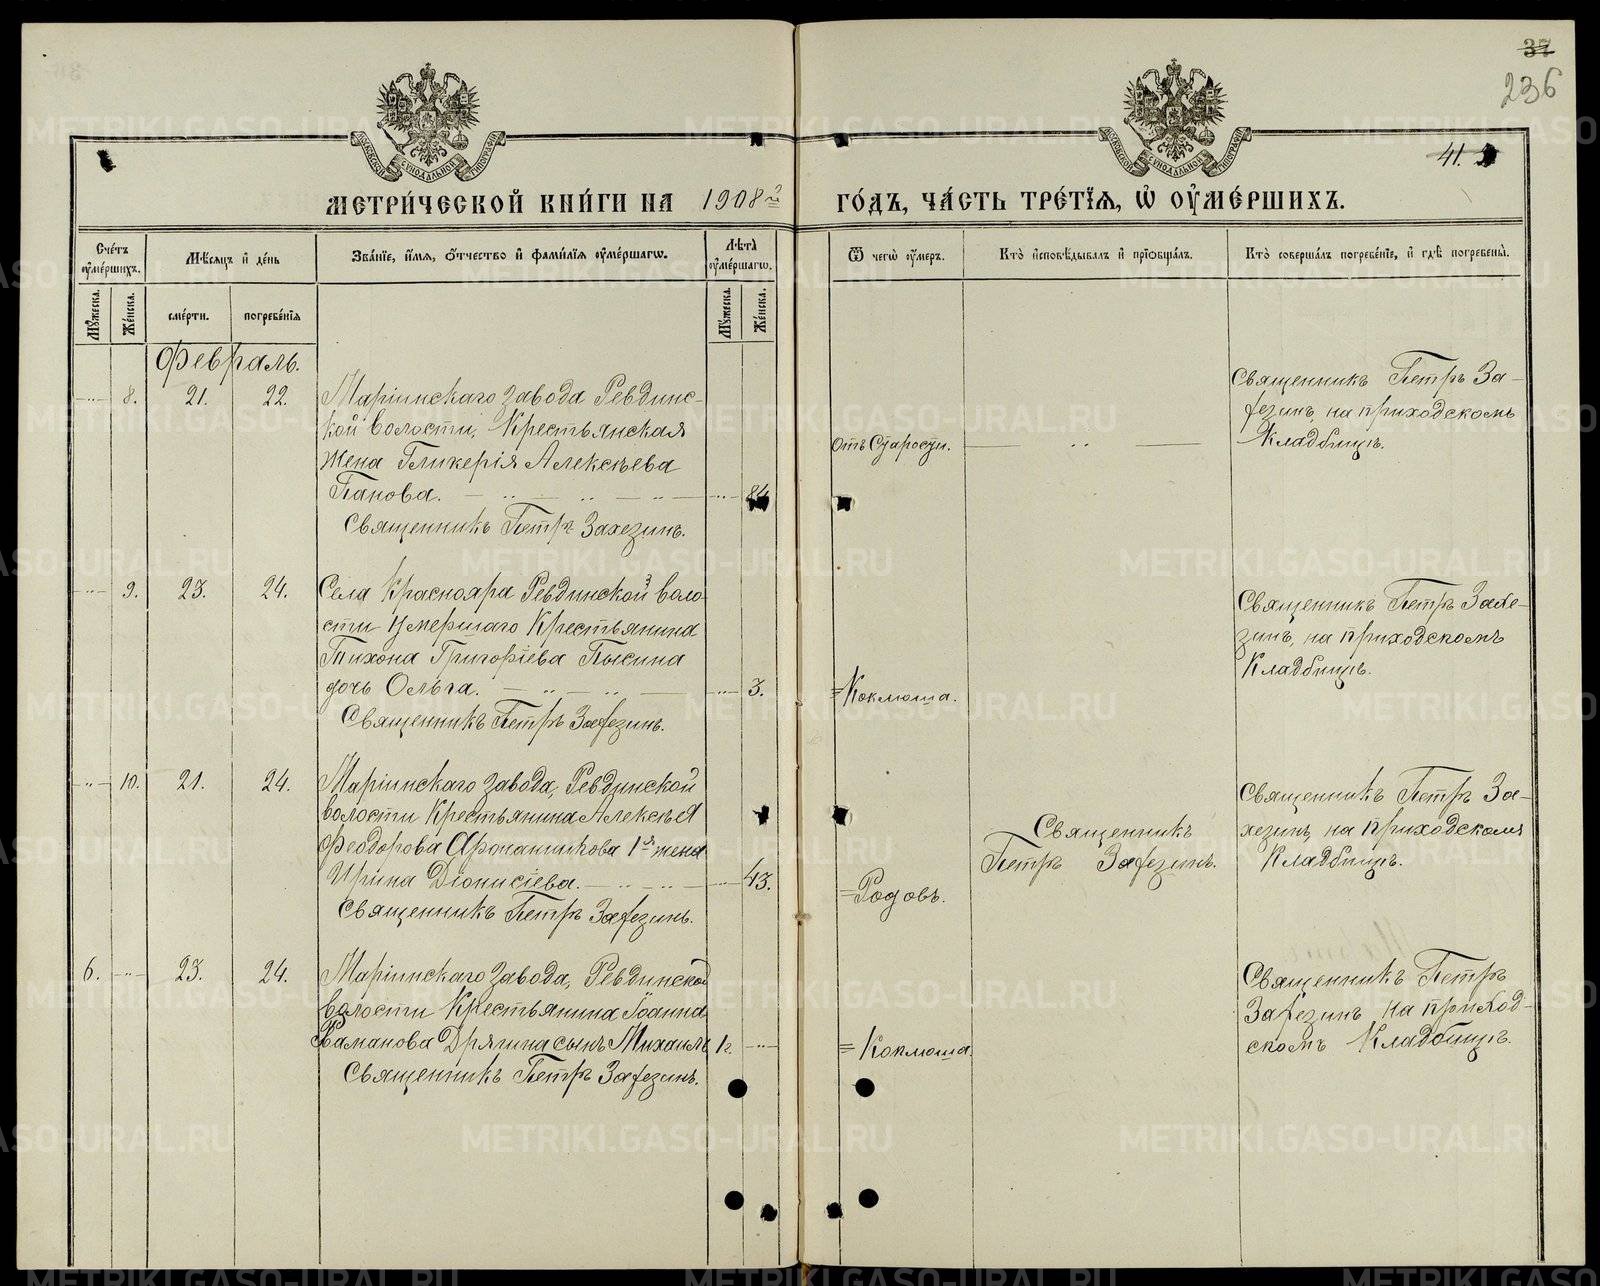 37
236
41.
МЕТРИ́ЧЕСКОЙ КНИ́ГИ НА 1908й ГО́ДЪ, ЧА́СТЬ ТРЕ́ТЇѦ, Ѡ҆ ОУ҆МЕ́РШИХЪ.
Сче́тъ оу҆ме́ршихъ.
Мꙋ́жеска.
Же́нска.
Мѣ́сяцъ и҆ де́нь
сме́рти.
погребе́нїѧ
Зва́нїе, и҆́мѧ, о҆́тчество и҆ фами́лїѧ оу҆ме́ршагѡ.
Лѣ́та оу҆ме́ршагѡ.
Мꙋ́жеска.
Же́нска.
Ѿ чегѡ̀ оу҆́меръ.
Кто̀ и҆сповѣ́дывалъ и҆ прїѡбща́лъ.
Кто̀ соверша́лъ погребе́нїе, и҆ гдѣ̀ погребены̀.
Февраль.
8. 21. 22.
Маріинскаго завода Ревдинс-
кой волости, Крестьянская
жена Гликерія Алексѣева
Панова. 84
Священникъ Петръ Захезинъ.
Отъ Старости.
Священникъ Петръ За-
хезинъ, на приходскомъ
кладбищѣ.
9. 23. 24.
Села Краснояра Ревдинской воло-
сти умершаго Крестьянина
Тихона Григоріева Пысина
дочь Ольга. 3.
Священникъ Петръ Захезинъ.
= Коклюша.
Священникъ Петръ Захе-
зинъ, на приходскомъ
Кладбищѣ.
10. 21. 24.
Маріинскаго завода, Ревдинской
волости Крестьянина Алексѣя
Феодорова 1я жена
Ирина Діонисіева. 43.
Священникъ Петръ Захезинъ.
= Родовъ.
Священникъ
Петръ Захезинъ.
Священникъ Петръ За-
хезинъ, на приходскомъ
Кладбищѣ.
6. 23. 24.
Маріинскаго завода, Ревдинской
волости Крестьянина Іоанна
Романова Дрягина сынъ Михаилъ 1г.
Священникъ Петръ Захезинъ.
= Коклюша.
Священникъ Петръ
Захезинъ на приход-
скомъ Кладбищѣ.
METRIKI.GASO-URAL.RU